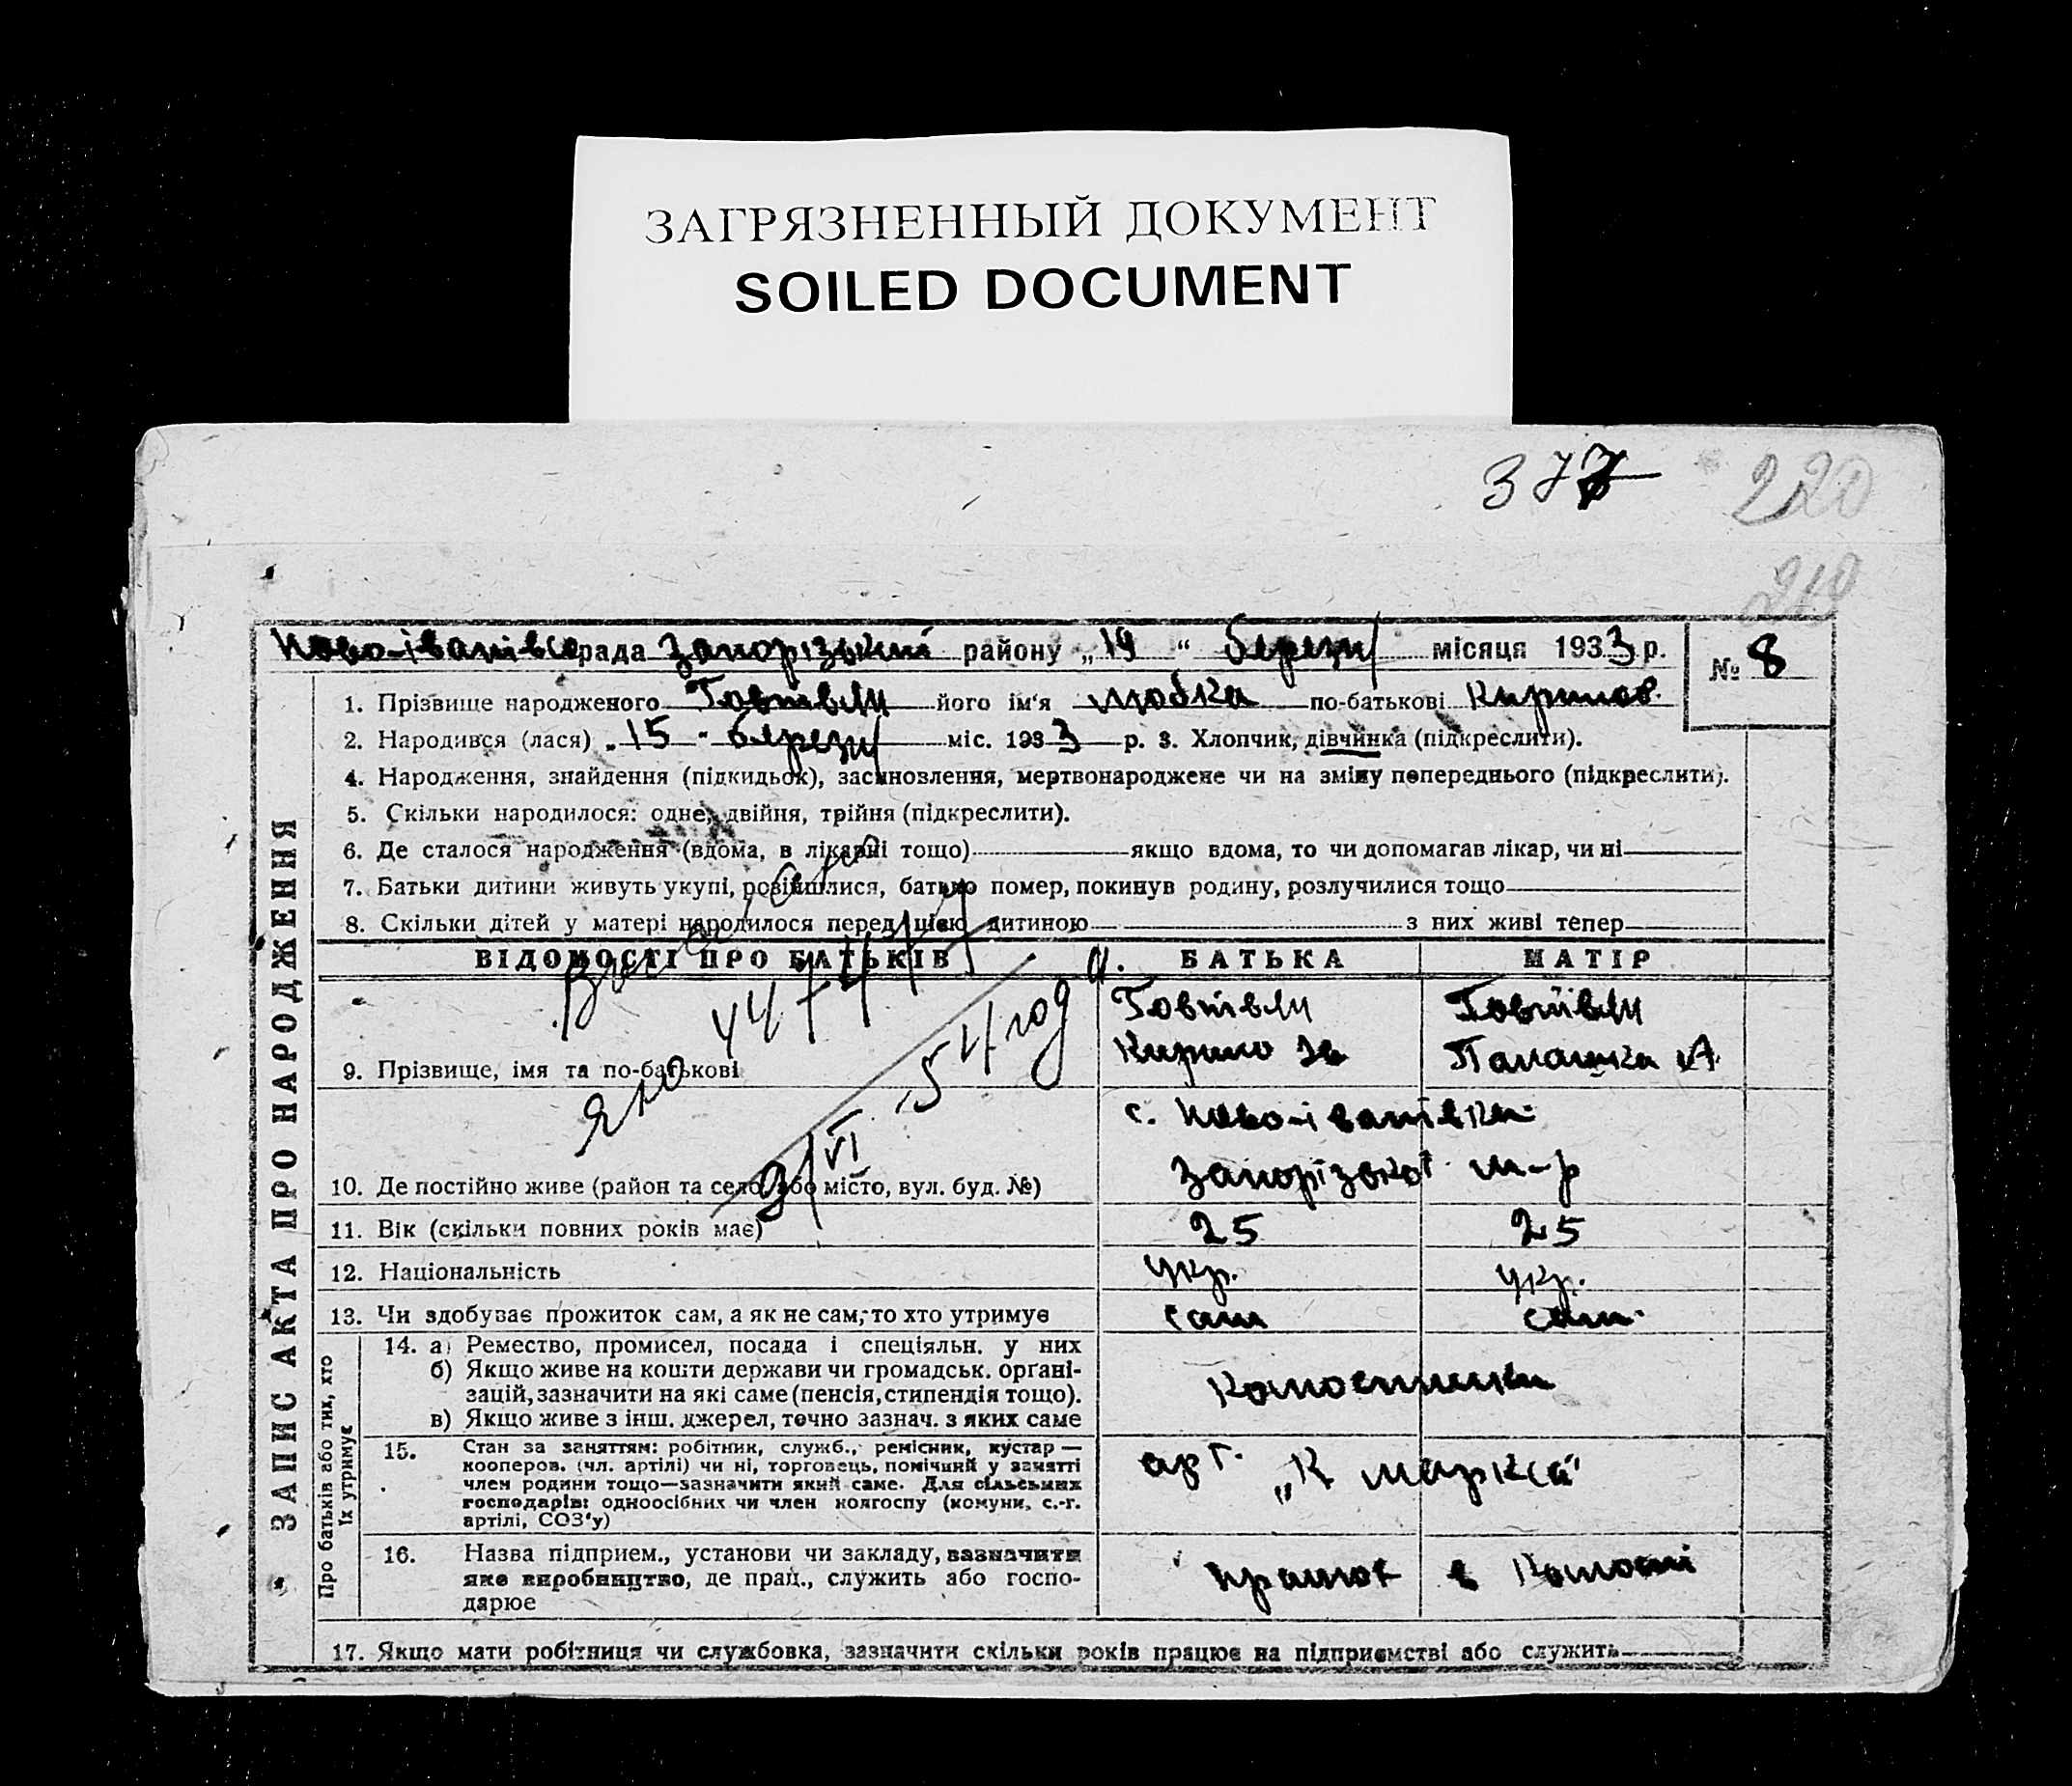 ЗАГРЯЗНЕННЫЙ ДОКУМЕНТ
SOILED DOCUMENT
377 220
210
Ново-іванівс рада Запорізький району „19“ березня місяця 1933 р. № 8
ЗАПИС АКТА ПРО НАРОДЖЕННЯ
1. Прізвище народженого його ім'я Любка по-батькові Кирилов.
2. Народився (лася) „15" березня міс. 1933 р. 3. Хлопчик, дівчинка (підкреслити).
4. Народження, знайдення (підкидьок), засиновлення, мертвонароджене чи на зміну попереднього (підкреслити).
5. Скільки народилося: одне, двійня, трійня (підкреслити).
6. Де сталося народження (вдома, в лікарні тощо) якщо вдома, то чи допомагав лікар, чи ні
7. Батьки дитини живуть укупі, розійшлися, батько помер, покинув родину, розлучилися тощо
8. Скільки дітей у матері народилося перед цією дитиною з них живі тепер
ВІДОМОСТІ ПРО БАТЬКІВ БАТЬКА МАТІР
9. Прізвище, імя та по-батькові Кирило Ів А.
3/VI 54 год
с. Ново-іванівка
10. Де постійно живе (район та село, або місто, вул. буд. №) Запорізької м-р
11. Вік (скільки повних років має) 25 25
12. Національність укр. укр.
13. Чи здобуває прожиток сам, а як не сам, то хто утримує сам сам.
Про батьків або тих, хто їх утримує
14. а) Ремество, промисел, посада і спеціяльн. у них
б) Якщо живе на кошти держави чи громадськ. орґані-
зацій, зазначити на які саме (пенсія, стипендія тощо).
в) Якщо живе з інш. джерел, точно зазнач. з яких саме
15. Стан за заняттям: робітник, служб., ремісник, кустар —
кооперов. (чл. артілі) чи ні, торговець, помічний у занятті
член родини тощо—зазначити який саме. Для сільських
господарів: одноосібних чи член колгоспу (комуни, с.-г.
артілі, СОЗ'у)
арт. „К Маркса"
16. Назва підприєм., установи чи закладу, зазначити
яке виробництво, де прац., служить або госпо-
дарює
17. Якщо мати робітниця чи службовка, зазначити скільки років працює на підприємстві або служить